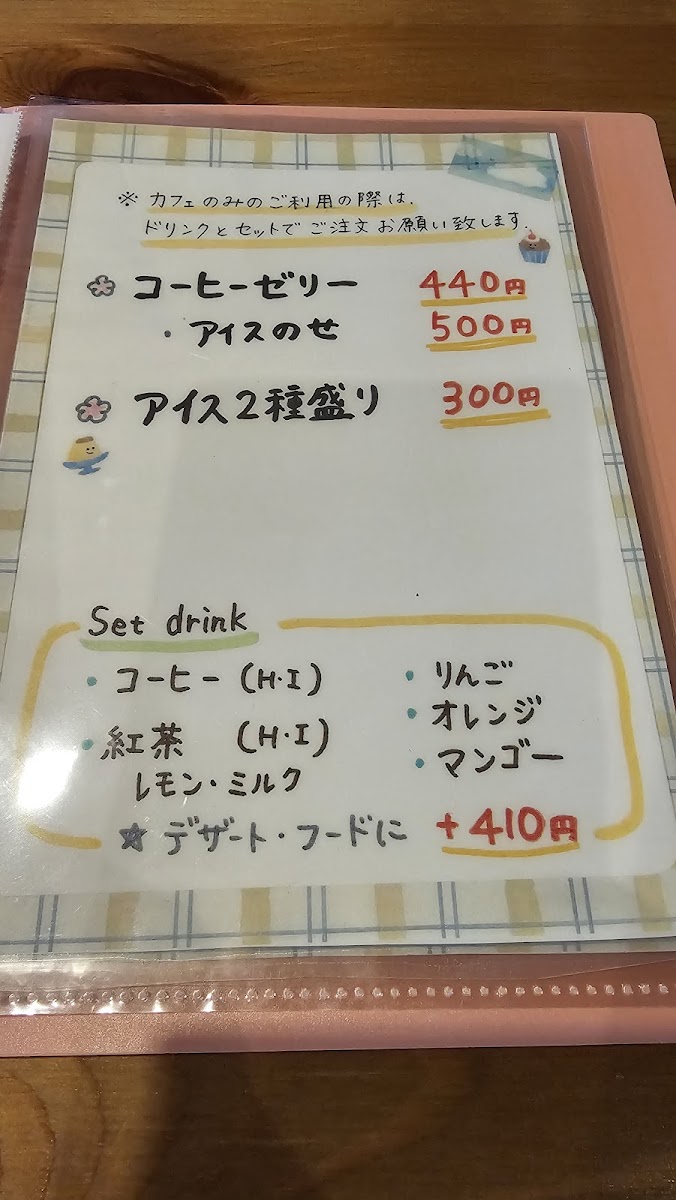 ※ カフェのみのご利用の際は、
ドリンクとセットでご注文お願い致します。
コーヒーゼリー 440円
・アイスのせ 500円
アイス2種盛り 300円
Set drink
・コーヒー (H・I)
・紅茶 (H・I)
レモン・ミルク
・りんご
・オレンジ
・マンゴー
☆ デザート・フードに +410円